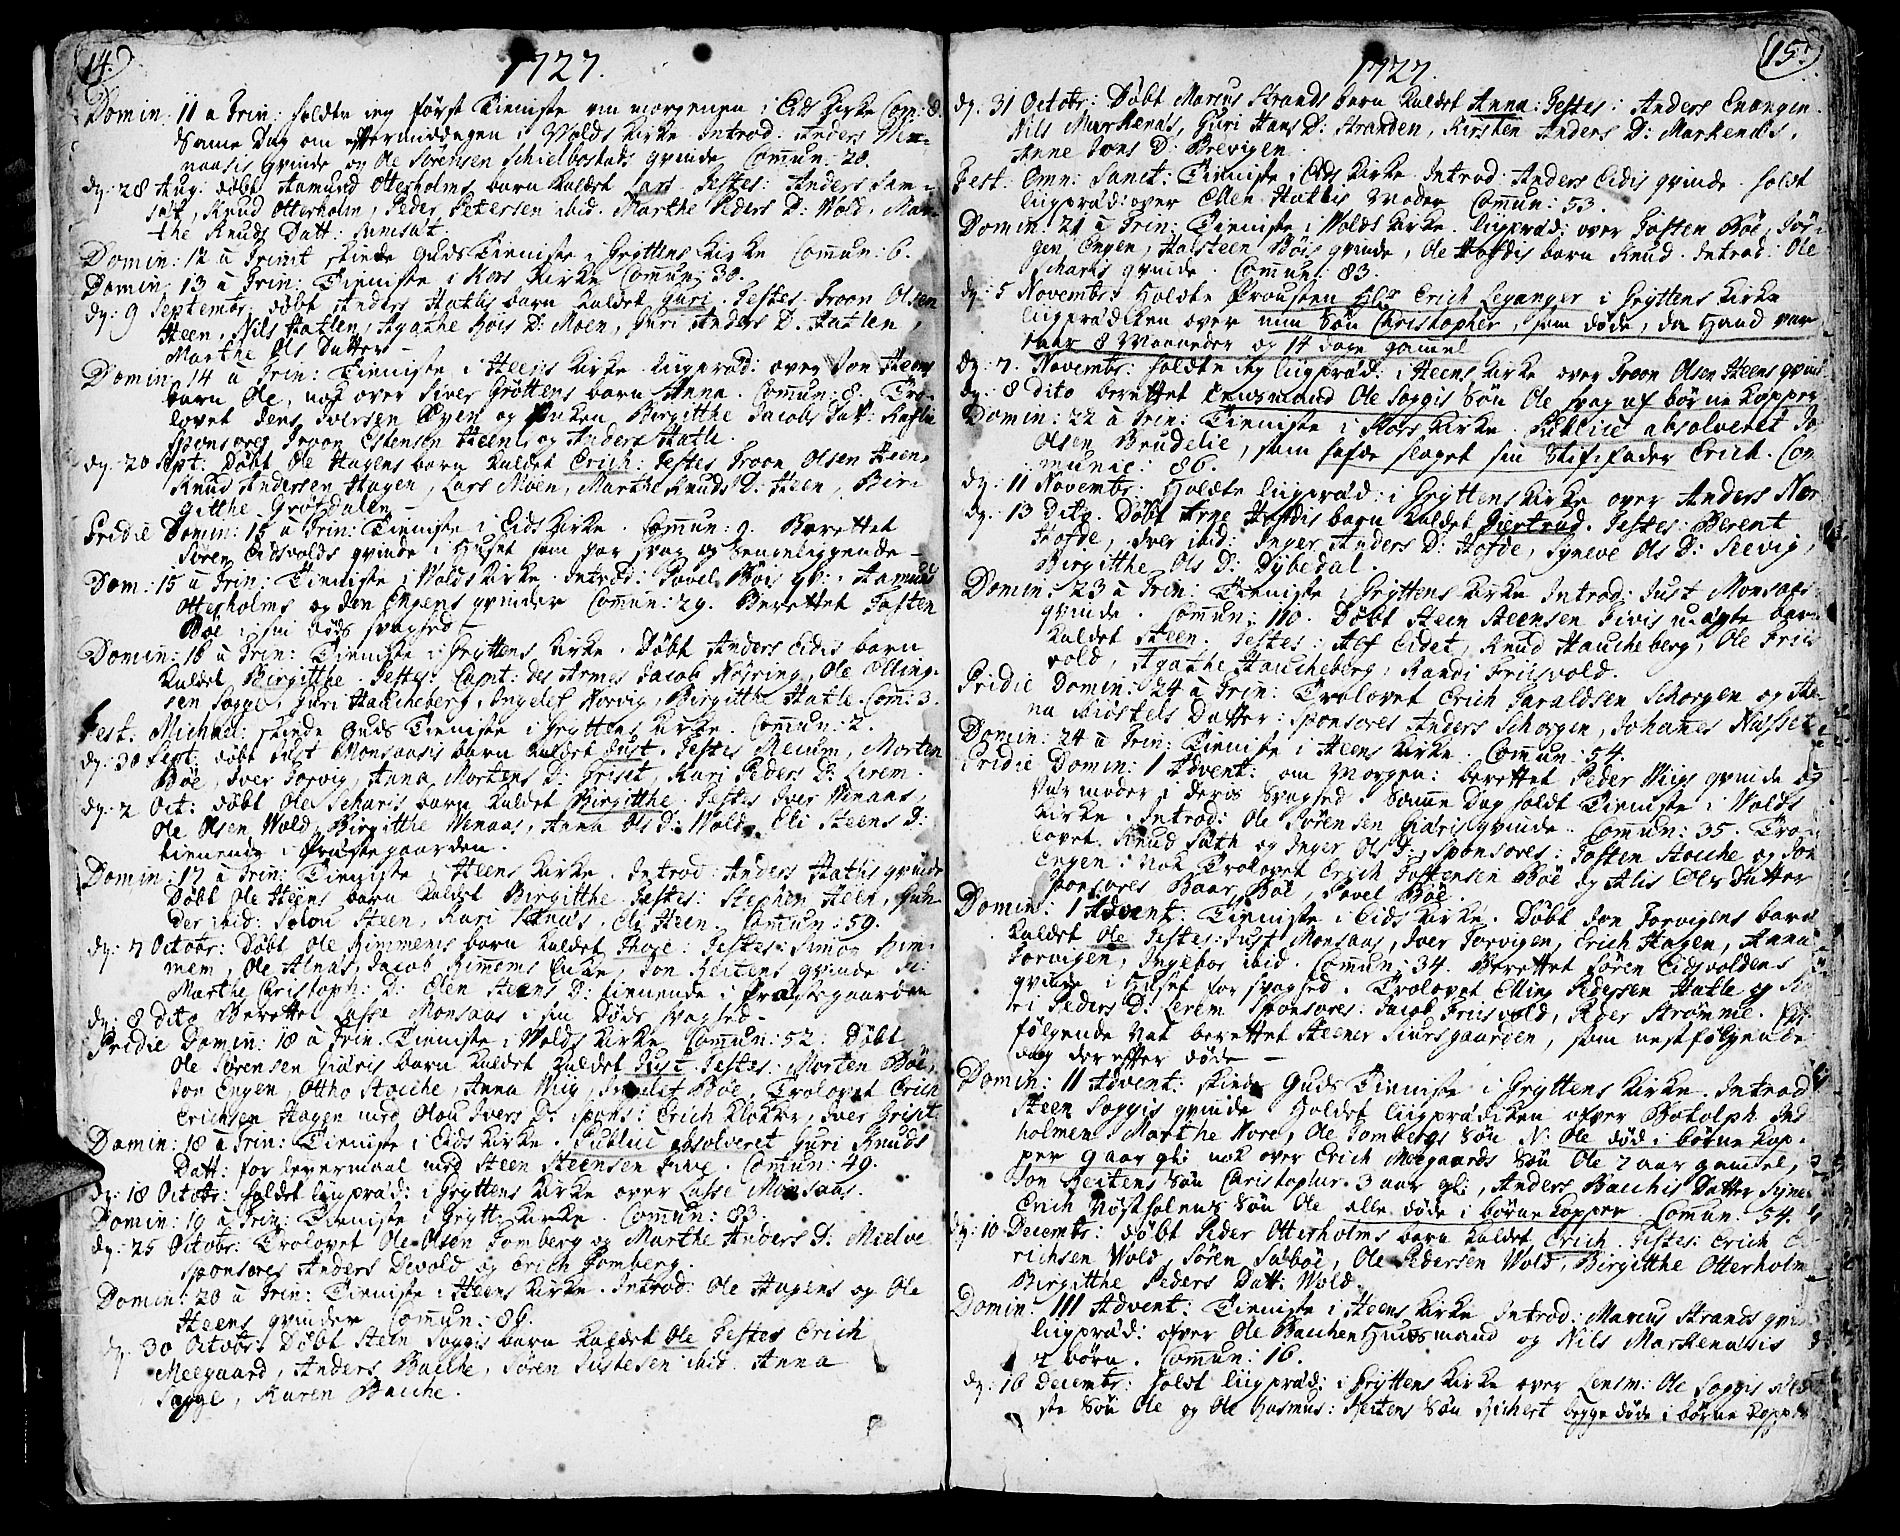 14.
1727.
Domin: 11 a Trin: holdte jeg først Tieniste om morgenen i Eids Kirke Com: 8.
Same Dag om efftermiddagen i Wolds Kirke. Introd: Anders
qvinde og Ole Sørensen Schielbostads qvinde. Com̄un: 20.
dg: 28 Aug: døbt Aamund Otterholms barn kaldet Lars. Testes: Anders Sam-
sat, Knud Otterholm, Peder Petersen ibid. Marthe Peders D: Wold, Mar-
the Knuds Datt: Sumsat.
Domin: 12 a Trinit skeede Guds Tieniste i Gryttens Kirke Com̄un: 6.
Domin: 13 a Trin: Tieniste i Kors Kirke Com̄un: 38.
dg: 9 Septembr: døbt Anders Hatlis barn kaldet Guri. Testes Troon Olsen
Heen, Nils Hatlen, Agathe Hois D: Moen, Guri Anders D. Hatlen,
Marthe Ols Datter
Domin: 14 a Trin: Tieniste i Heens Kirke liigpræd: over Jon Heens
barn Ole, nok over Siver Grøttens barn Anna. Com̄un: 8. Tro-
lovet Jens Iversen Øyen og Enken Birgitthe Jacobs Dat:
Sponsores Troon Estensen Heen og Anders Hatle.
dg: 20 Sept: Døbt Ole Hagens barn kaldet Erich: Testes Troon Olsen Heen,
Knud Andersen Hagen, Lars Moen, Marthe Knuds D: Heen, Bir-
gitthe Grøsdalen
Pridie Domin: 15 a Trin: Tieniste i Eids Kirke. Com̄un: 9. Berettet
Søren Eidsvolds qvinde i Huset som var svag og sengeliggende
Dom: 15 a Trin: Tieniste i Wolds Kirke. Introd: Povel Bøis qv: Aamund
Otterholms og Jon Engens qvinder Com̄un: 29. Berettet Josten
Bøe i sin døds svaghed
Domin: 16 a Trin: Tieniste i Gryttens Kirke. Døbt Anders Eidis barn
kaldet Birgitthe. Testes: Capt: des Armes Jacob Nøyring, Ole Elling-
sen Sogge, Guri Haucheberg, Ingelef Norvig, Birgitthe Hatle. Com: 3.
Fest. Michael: skeede Guds Tieniste i Gryttens Kirke. Com̄un: 2.
dg: 30 Sept: døbt Just Monsaasis barn kaldet Just. Testes Meum, Morten
Bøe, Iver Torvig, Anna Mortens D: Griset, Kari Peders D: Lerem.
dg: 2 Oct: døbt Ole Scharis barn kaldet Birgitthe. Testes Iver Wenaas,
Ole Olsen Wold, Birgitthe Wenaas, Anna Ols D: Wold, Eli Steens D:
tienende i Præstegaarden.
Domin: 17 a Trin: Tieniste i Heens Kirke. Introd: Anders Hatlis qvinde
Døbt Ole Heens barn kaldet Birgitthe Testes: Stephen Heen,
ibid: Heen, Kari, Eli Heen. Com̄un: 59.
dg: 7 Octobr: Døbt Ole Himmems barn kaldet Thore: Testes: Simon Him-
mem, Ole Alnæs, Jacob Himmems Enke, Jon Heitens qvinde
Marthe Christoph: D: Elen Steens D: tienende i Præstegaarden
dg: 8 Dito Berettet Lasse Monsaas i sin Døds svaghed
Pridie Domin: 18 a Trin. Tieniste i Wolds Kirke Com̄un: 52. Døbt
Ole Sørensen Giæris barn kaldet kaldet Just. Testes: Morten Bøe,
Jon Engen, Ottho Houche, Anna Miig, Ingelef Bøe. Trolovet Erich
Erichsen Hagen med Olou Ivers D: Spons: Erich Klokker, Iver Griset.
Domin: 18 a Trin: Tieniste i Eids Kirke. Publice absolveret Guri Knuds
Datt: for levermaal med Steen Steensen Five. Com̄un: 49.
dg: 18 Octobr: holdet liigpræd: i Gryttens Kirke over Lasse Monsaas.
Domin: 19 a Trin: Tieniste i Grytt: Kirke. Com̄un: 83.
dg: 25 Octobr: Trolovet Ole Olsen Tomberg og Marthe Anders D: Mielve
Sponsores Anders Devold og Erich Tomberg.
Domin: 20 a Trin: Tieniste i Heens Kirke. Introd: Ole Hagens og Ole
Heens qvinder Com̄un: 89.
dg: 30 Octobr: Døbt Steen Soggis barn kaldet Ole Testes Erich
Meegaard, Anders Bache, Søren Justesen ibid. Anna
Sogge, Karen Bache.
15.
1727.
dg: 31 Octobr: Døbt Marcus Strands barn kaldet Anna: Testes: Anders Enangen
Nils Markenæs, Guri Hans D: Stranden, Kirsten Anders D: Markenæs,
Anne Jons D: Brevigen.
Fest: Omn: Sanct: Tieniste i Eids Kirke. Introd: Anders Eidis qvinde. holdt
liigpræd: over Ellen Hatlis Moder Com̄un: 53.
Domin: 21 a Trin: Tieniste i Wolds Kirke. liigpræd: over Josten Bøe, Jør-
gen Engen, Halsteen Bøis qvinde, Ole Hofdis barn Knud. Introd: Ole
Scharis qvinde. Com̄un: 83.
dg: 5 Novembr: Holdte Prousten Hlr Erich Leganger i Gryttens Kirke
liigprædiken over min Søn Christopher, som døde, da Hand var
1 aar 8 Maaneder og 14 dage gam̄el
dg: 7. Novembr: holdte jeg liigpræd: i Heens Kirke over Troon Olsen Heens qvinde
dg: 8 dito berettet Lensmand Ole Soggis Søn Ole svag af børne kopper
Domin: 22 a Trin: Tieniste i Kors Kirke. Publice absolveret Jo
Olsen Brudelie, som hafde slaget sin Stiffader Erich. Com
munic: 86.
dg: 11 Novembr: Holdte liigpræd: i Gryttens Kirke over Anders Nor
dg: 13 Dito. Døbt Arne Hofdis barn kaldet Giertrud. Testes: Berent
Hofde, Iver ibid: Inger Anders D: Hofde, Syneve Ols D: Seevig,
Birgitthe Ols D: Dybedal.
Domin: 23 a Trin: Tieniste i Gryttens Kirke Introd: Just Monsaas
qvinde. Com̄un: 110. Døbt Steen Steensen Fivis uægte barn
kaldet Steen. Testes: Alf Eidet, Knud Haucheberg, Ole Friis
vold, Agathe Haucheberg, Randi Friisvold.
Pridie Domin: 24 a Trin: Trolovet Erich Haraldsen Schorgen og
na Datter: Sponsores Anders Schorgen, Johannes
Domin: 24 a Trin: Tieniste i Heens Kirke. Com̄un: 54.
Pridie Domin: 1 Advent: om Morgen: berettet Peder Miigs qvinde og
Værmoder i deris Svaghed. Samme Dag holdt Tieniste i Wolds
Kirke. Introd: Ole Sørensen Giæris qvinde. Com̄un: 35. Tro-
lovet Knud Sath og Inger Ols D: Sponsores: Josten Houche og Jon
Engen: Nok Trolovet Erich Jostensen Bøe og Alis Ols Datter
Sponsores Baar Bøe, Povel Bøe.
Domin: 1 Advent: Tieniste i Eids Kirke. Døbt Jon Torvigens barn
kaldet Ole Testes: Just Monsaas, Iver Torvigen, Erich Hagen, Anna
Torvigen, Ingebor ibid. Com̄un: 34. Berettet Søren Eidsvoldens
qvinde i Huset for svaghed. Trolovet Elling Pedersen Hatle og Ka-
ri Peders D: Lerem Sponsores: Jacob Friisvold, Peder Strømme.
følgende Nat berettet Steener Siursgaarden, som nestfølgende
dag der effter døde
Domin: 11 Advent: skeede Guds Tieniste i Gryttens Kirke. Introd
Steen Soggis qvinde Holdet liigprædiken ofver Botolph
holmen. Marthe Nore, Ole Tombergs Søn N: Ole død i børne kop-
per 9 aar gl: nok over Erich Meegaards Søn Ole 2 aar gam̄el,
Jon Heitens Søn Christopher. 3 aar gl:, Anders Bachis Datter Syne
Erich Nøstholmens Søn Ole alle døde i børne kopper. Com̄un: 54.
dg: 10 Decembr: døbt Peder Otterholms barn kaldet Erich. Testes: Erich E
richsen Wold, Søren Sæbøe, Ole Pedersen Wold, Birgitthe Otterholm
Birgitthe Peders Datt: Wold.
Domin: 111 Advent: Tieniste i Heens Kirke Introd: Marcus Strands qvinde
liigpræd: ofver Ole Bachen Huusmand og Nils Markenæsis
2 børn. Com̄un: 16.
dg: 16 Decembr: holdt liigpræd: i Gryttens Kirke over Lensm: Ole Soggis
ste Søn Ole og Ole Rasmus: Heitens Søn Richert begge døde i børne kopper